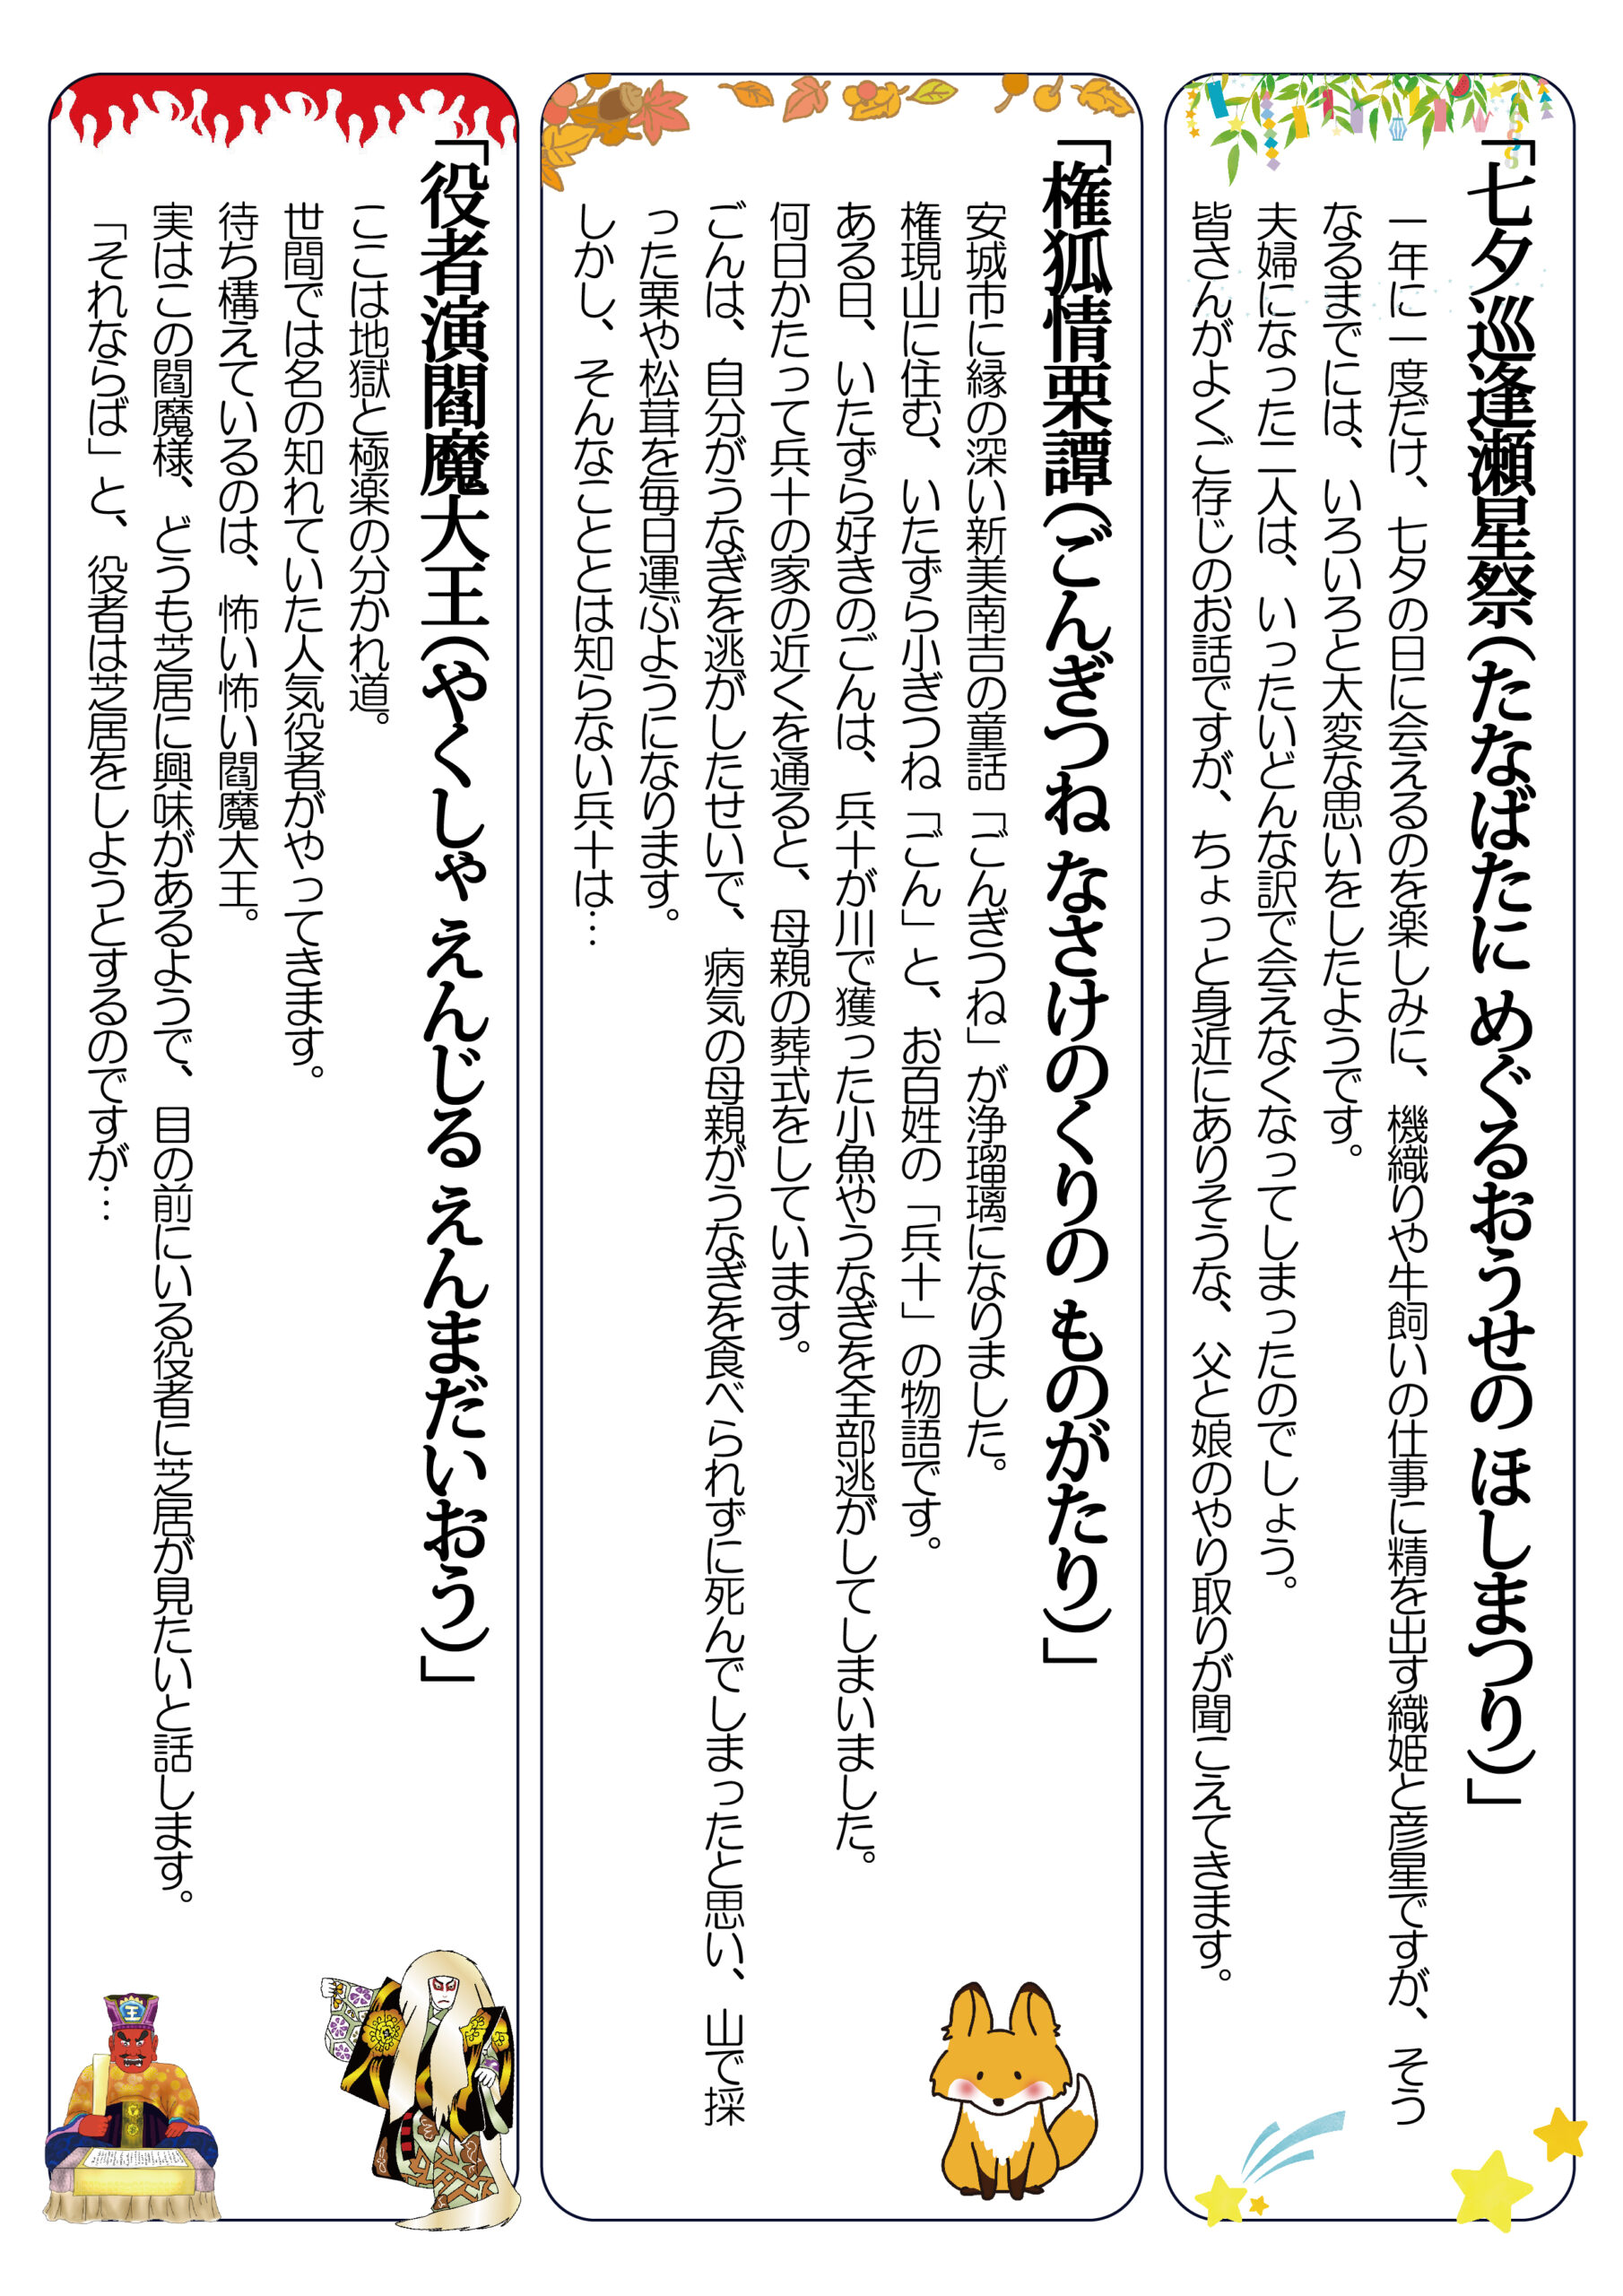 「七夕巡逢瀬星祭（たなばたに めぐるおうせの ほしまつり）」
一年に一度だけ、七夕の日に会えるのを楽しみに、機織りや牛飼いの仕事に精を出す織姫と彦星ですが、そう
なるまでには、いろいろと大変な思いをしたようです。
夫婦になった二人は、いったいどんな訳で会えなくなってしまったのでしょう。
皆さんがよくご存じのお話ですが、ちょっと身近にありそうな、父と娘のやり取りが聞こえてきます。
「権狐情栗譚（ごんぎつね なさけのくりの ものがたり）」
安城市に縁の深い新美南吉の童話「ごんぎつね」が浄瑠璃になりました。
権現山に住む、いたずら小ぎつね「ごん」と、お百姓の「兵十」の物語です。
ある日、いたずら好きのごんは、兵十が川で獲った小魚やうなぎを全部逃がしてしまいました。
何日かたって兵十の家の近くを通ると、母親の葬式をしています。
ごんは、自分がうなぎを逃がしたせいで、病気の母親がうなぎを食べられずに死んでしまったと思い、山で採
った栗や松茸を毎日運ぶようになります。
しかし、そんなこととは知らない兵十は…
「役者演閻魔大王（やくしゃ えんじる えんまだいおう）」
ここは地獄と極楽の分かれ道。
世間では名の知れていた人気役者がやってきます。
待ち構えているのは、怖い怖い閻魔大王。
実はこの閻魔様、どうも芝居に興味があるようで、目の前にいる役者に芝居が見たいと話します。
「それならば」と、役者は芝居をしようとするのですが…
王